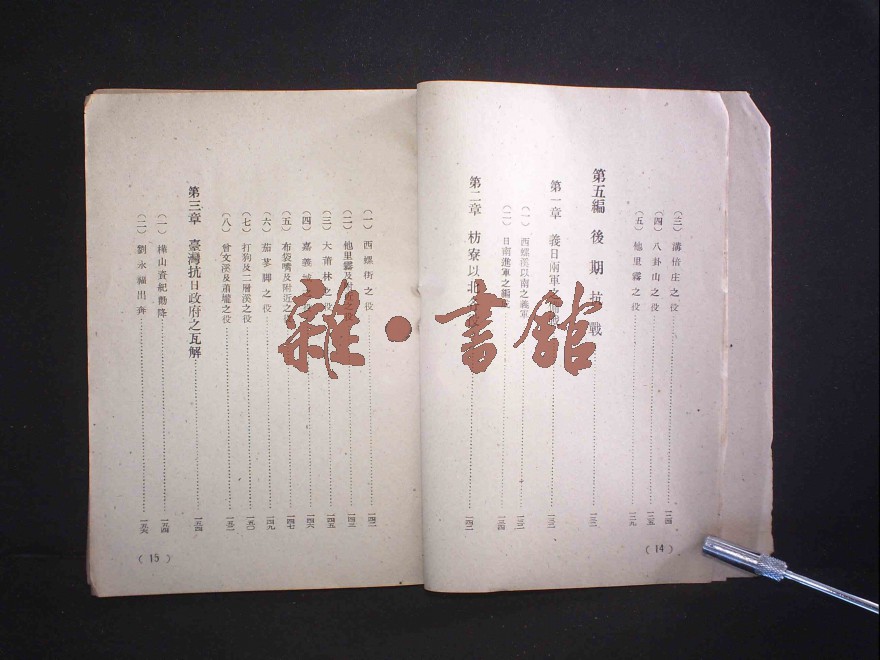 (三) 溝倍庄之役 一二四
(四) 八卦山之役 一二五
(五) 他里霧之役 一二九
第五編 後期抗戰 一三一
第一章 義日南軍之 一三一
(一) 西螺溪以南之義軍 一三一
(二) 日南進軍之編 一三四
第二章 枋寮以北 一四二
(14)
(一) 西螺街之役 一四二
(二) 他里霧及附 一四三
(三) 大莆林之役 一四五
(四) 嘉義城之役 一四六
(五) 布袋嘴及附近之役 一四七
(六) 茄苳脚之役 一四九
(七) 打狗及二層溪之役 一五〇
(八) 曾文溪及蕭壠之役 一五二
第三章 臺灣抗日政府之瓦解 一五四
(一) 樺山資紀勸降 一五四
(二) 劉永福出奔 一五六
(15)
雜·書館